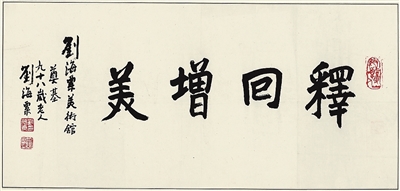 釋回增美
劉海粟美術館
奠基
九十八歲老人
劉海粟